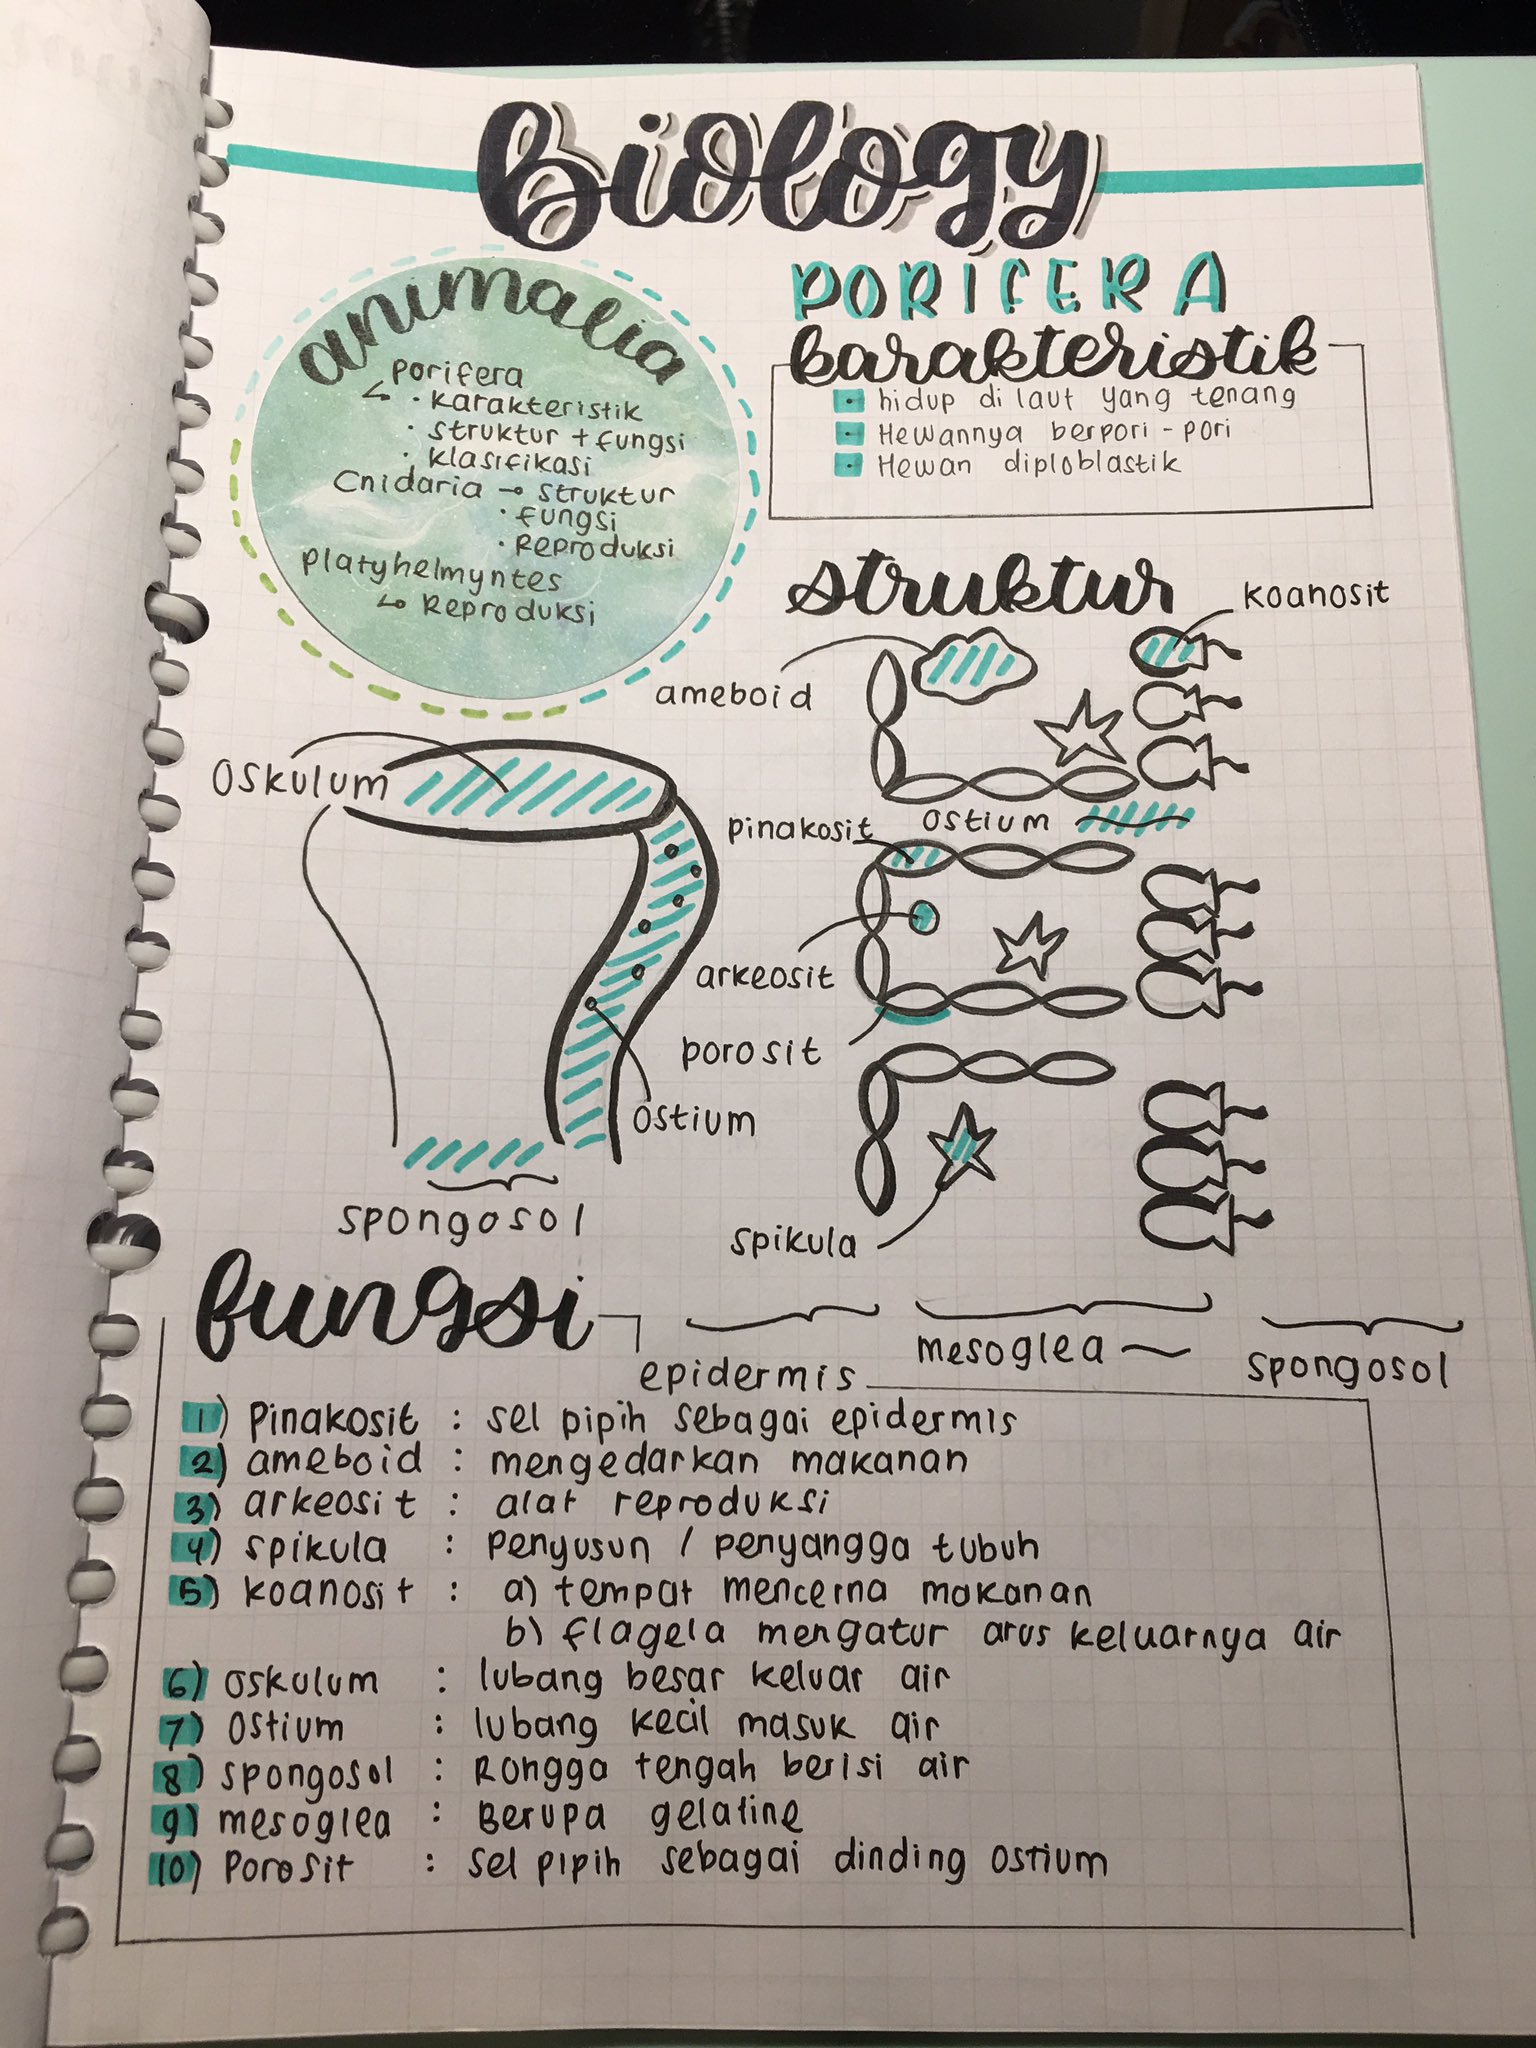 Biology
animalia
Porifera
↳ · Karakteristik
· struktur + fungsi
· klasifikasi
Cnidaria → struktur
· fungsi
· Reproduksi
Platyhelmyntes
↳ Reproduksi
PORIFERA
karakteristik
hidup di laut yang tenang
Hewannya berpori - pori
Hewan diploblastik
struktur
koanosit
ameboid
oskulum
pinakosit
ostium
arkeosit
porosit
ostium
spongosol
spikula
epidermis
mesoglea
spongosol
fungsi
1) Pinakosit : sel pipih sebagai epidermis
2) ameboid : mengedarkan makanan
3) arkeosit : alat reproduksi
4) spikula : Penyusun / penyangga tubuh
5) koanosit : a) tempat mencerna makanan
b) flagela mengatur arus keluarnya air
6) oskulum : lubang besar keluar air
7) Ostium : lubang kecil masuk air
8) spongosol : Rongga tengah berisi air
9) mesoglea : Berupa gelatine
10) Porosit : sel pipih sebagai dinding ostium